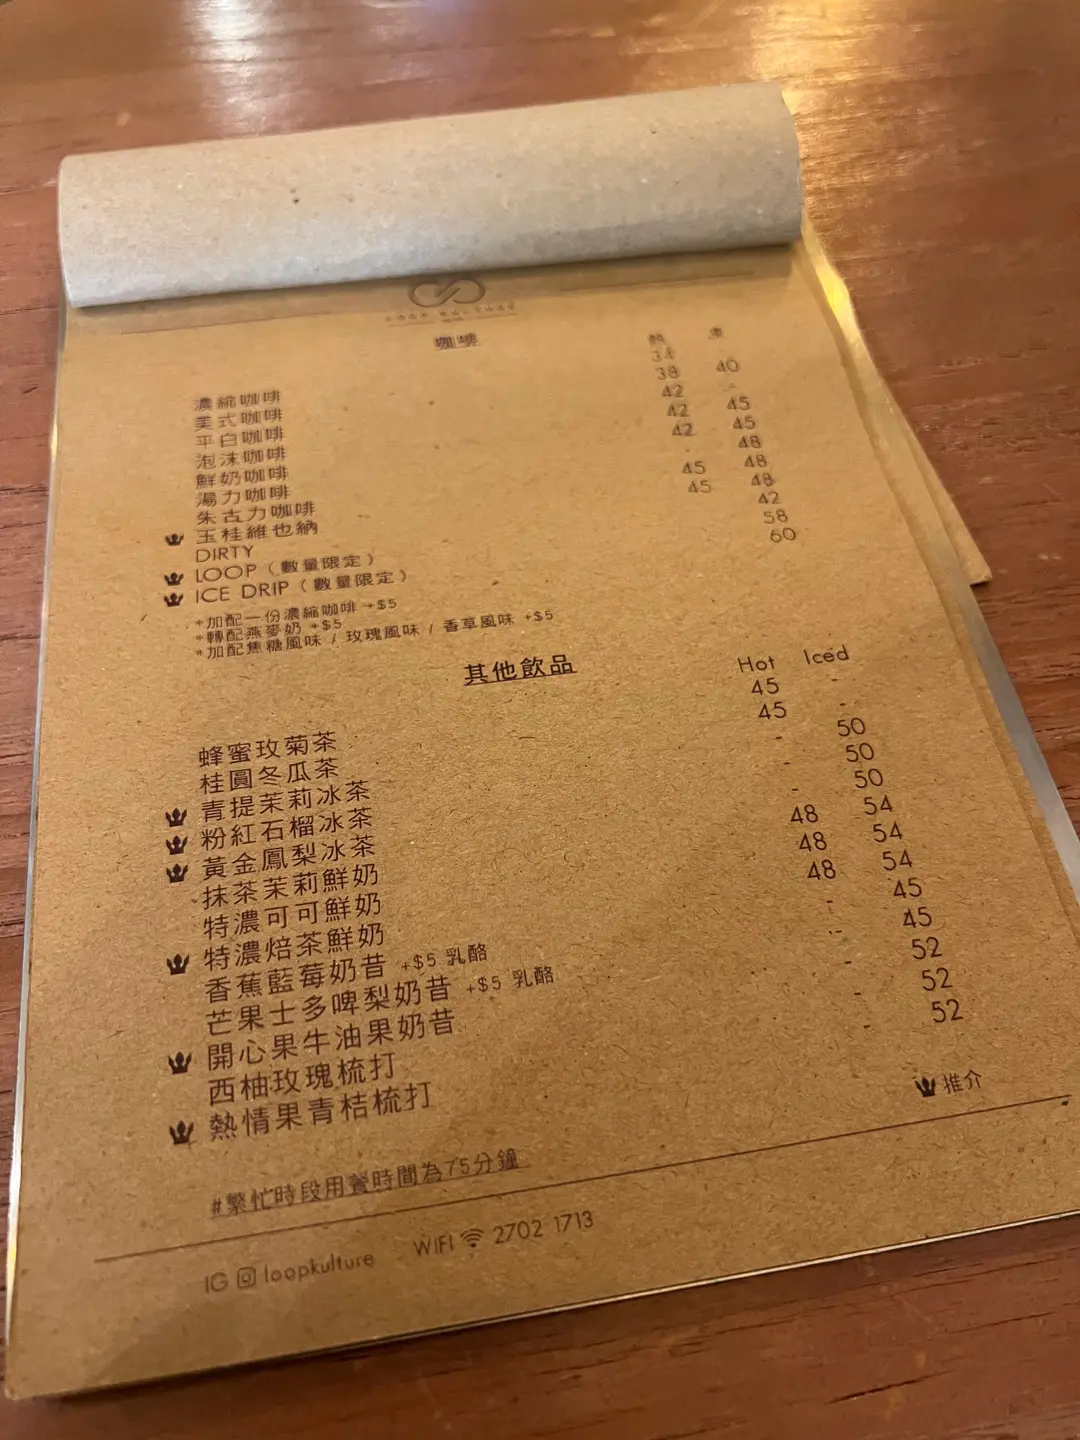 咖啡 熱 凍
濃縮咖啡 34
美式咖啡 38 40
平白咖啡 42 -
泡沫咖啡 42 45
鮮奶咖啡 42 45
湯力咖啡 - 48
朱古力咖啡 45 48
玉桂維也納 45 48
DIRTY 42
LOOP（數量限定） 58
ICE DRIP（數量限定） 60
*加配一份濃縮咖啡 +$5
*轉配燕麥奶 +$5
*加配焦糖風味 / 玫瑰風味 / 香草風味 +$5
其他飲品 Hot Iced
蜂蜜玫菊茶 45 -
桂圓冬瓜茶 45 -
青提茉莉冰茶 - 50
粉紅石榴冰茶 - 50
黃金鳳梨冰茶 - 50
抹茶茉莉鮮奶 48 54
特濃可可鮮奶 48 54
特濃焙茶鮮奶 48 54
香蕉藍莓奶昔 +$5 乳酪 - 45
芒果士多啤梨奶昔 +$5 乳酪 - 45
開心果牛油果奶昔 - 52
西柚玫瑰梳打 - 52
熱情果青桔梳打 - 52
推介
#繁忙時段用餐時間為75分鐘
IG loopkulture WIFI 2702 1713